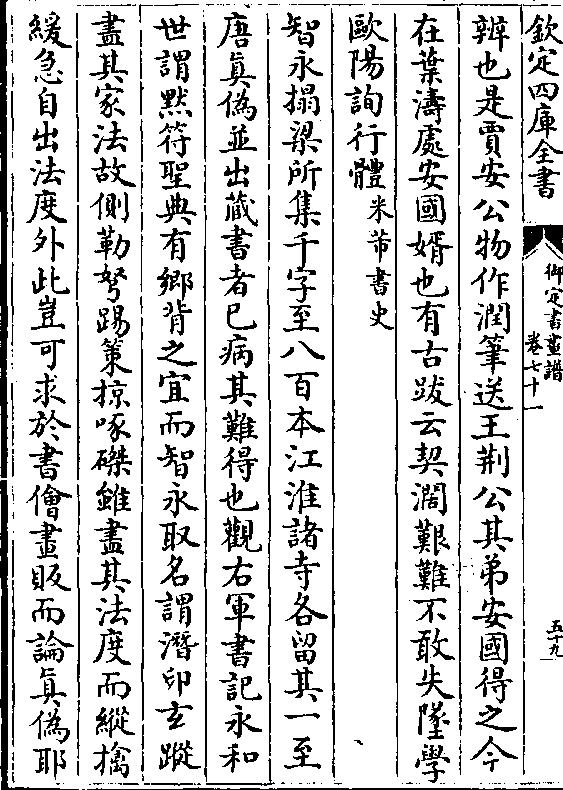 欽定四庫全書
御定書畫譜
卷七十一
五十九
辨也是賈安公物作潤筆送王荆公其弟安國得之今
在葉濤處安國婿也有古跋云契濶艱難不敢失墜學
歐陽詢行體米芾書史
智永搨梁所集千字至八百本江淮諸寺各留其一至
唐眞偽並出藏書者已病其難得也觀右軍書記永和
世謂黙符聖典有鄉背之宜而智永取名謂潛印玄蹤
盡其家法故側勒弩踢策掠啄磔雖盡其法度而縱擒
緩急自出法度外此豈可求於書儈畫販而論眞偽耶